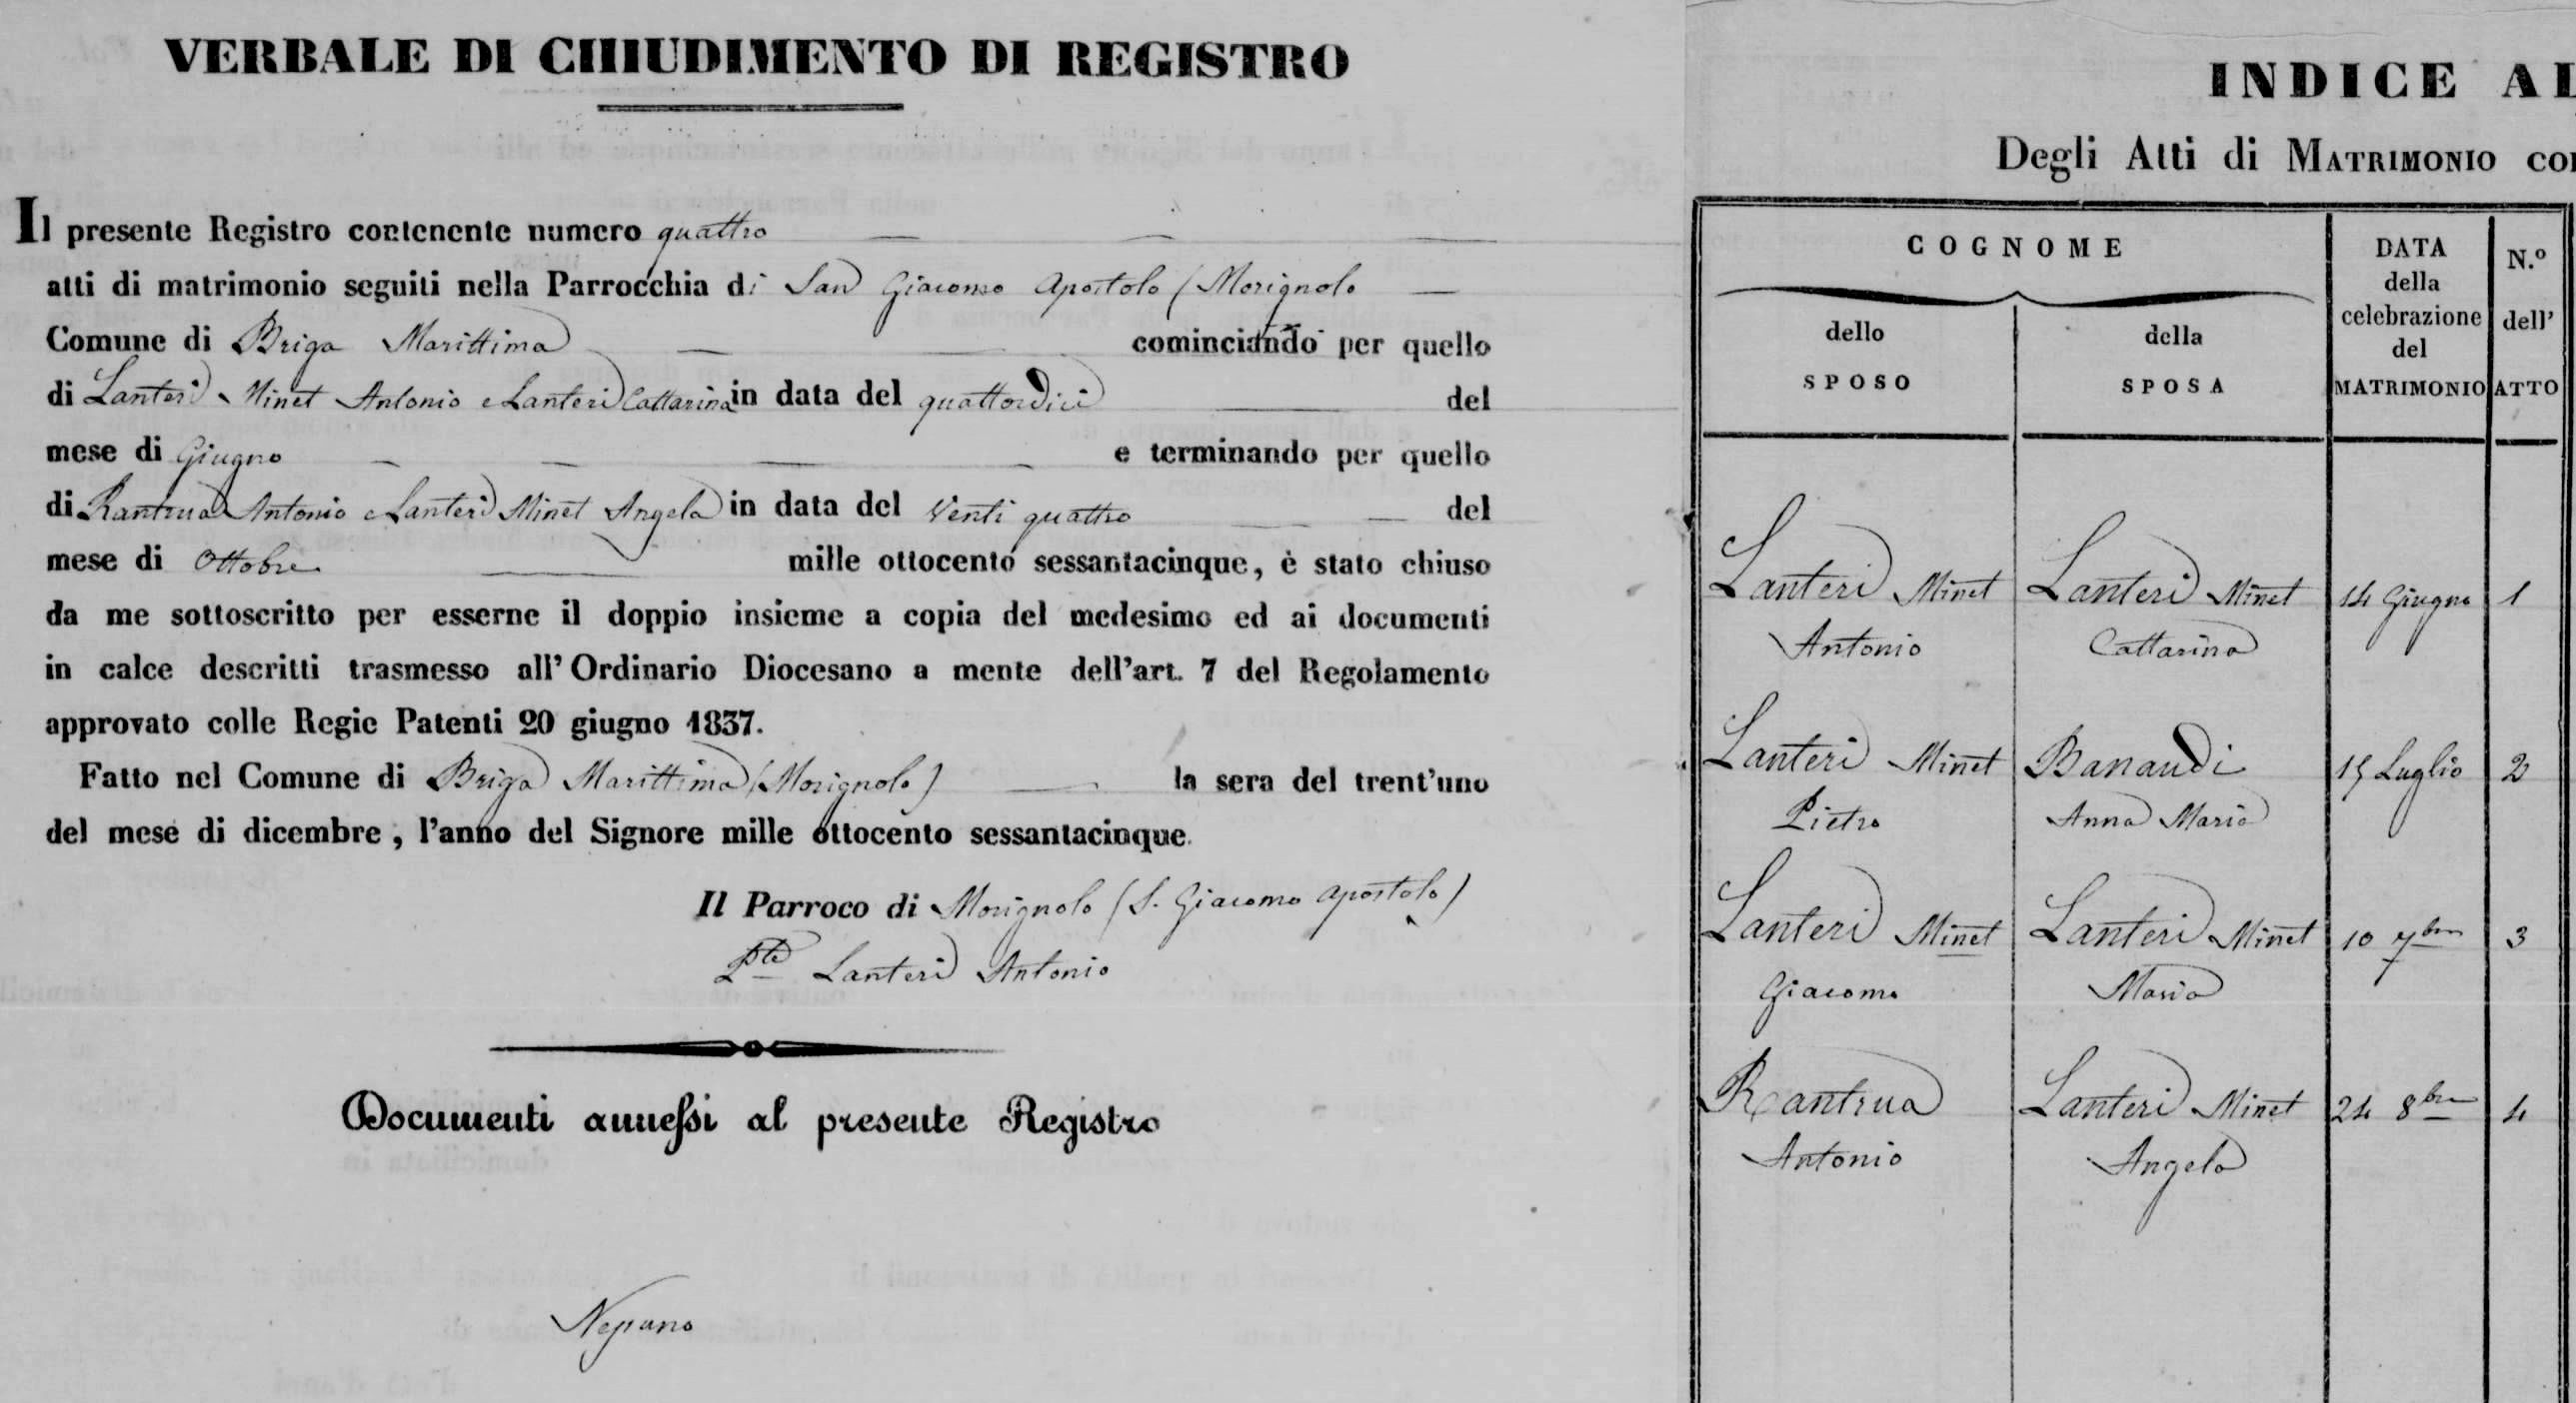 VERBALE DI CHIUDIMENTO DI REGISTRO
Il presente Registro contenente numero quattro
atti di matrimonio seguiti nella Parrocchia di San Giacomo Apostolo (Morignolo
Comune di Briga Marittima cominciando per quello
di Lanteri Minet Antonio e Lanteri Cattarina in data del quattordici del
mese di Giugno e terminando per quello
di Rantrua Antonio e Lanteri Minet Angela in data del Venti quattro del
mese di Ottobre mille ottocento sessantacinque, è stato chiuso
da me sottoscritto per esserne il doppio insieme a copia del medesimo ed ai documenti
in calce descritti trasmesso all'Ordinario Diocesano a mente dell'art. 7 del Regolamento
approvato colle Regie Patenti 20 giugno 1837.
Fatto nel Comune di Briga Marittima (Morignolo) la sera del trent'uno
del mese di dicembre, l'anno del Signore mille ottocento sessantacinque.
Il Parroco di Morignolo (S. Giacomo Apostolo)
Pte Lanteri Antonio
Documenti annessi al presente Registro
Nepuno
INDICE AL
Degli Atti di MATRIMONIO co
COGNOME
dello SPOSO
della SPOSA
DATA della celebrazione del MATRIMONIO
N.º dell' ATTO
Lanteri Minet Lanteri Minet 14 Giugno 1
Antonio Cattarina
Lanteri Minet Banaudi 15 Luglio 2
Pietro Anna Maria
Lanteri Minet Lanteri Minet 10 7bre 3
Giacomo Maria
Rantrua Lanteri Minet 24 8bre 4
Antonio Angela